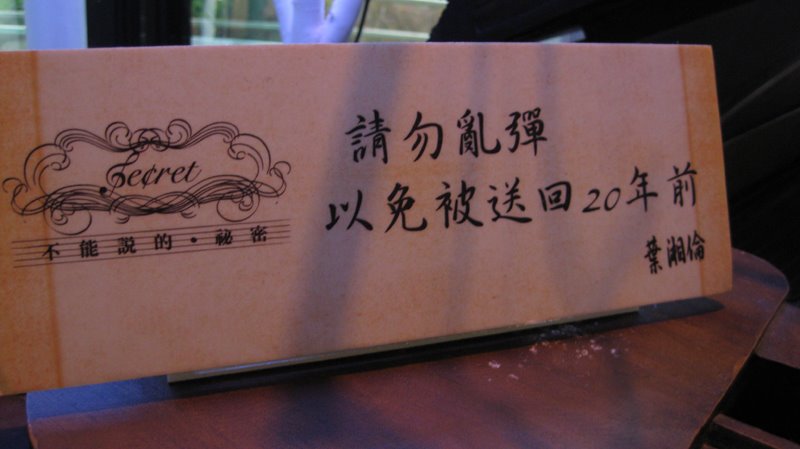 Secret
不能説的·祕密
請勿亂彈
以免被送回20年前
葉湘倫